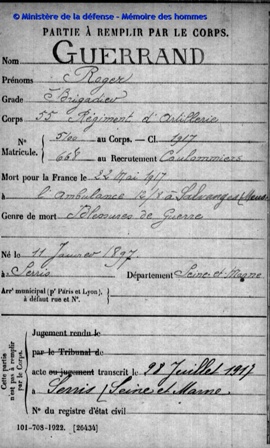 © Ministère de la défense - Mémoire des hommes
PARTIE À REMPLIR PAR LE CORPS.
Nom GUERRAND
Prénoms Roger
Grade Brigadier
Corps 55 Régiment d'Artillerie
N° Matricule. { 540 au Corps. — Cl. 1917
668 au Recrutement Coulommiers
Mort pour la France le 22 Mai 1917
à l'Ambulance 12/8 à (Meuse)
Genre de mort Blessures de Guerre
Né le 11 Janvier 1897
à Serris Département Seine et Marne
Arr' municipal (p' Paris et Lyon), à défaut rue et N°.
Cette partie n'est pas à remplir par le Corps.
Jugement rendu le
par le Tribunal de
acte ou jugement transcrit le 28 Juillet 1917
à Serris (Seine et Marne
N° du registre d'état civil
101-708-1922. [26434]